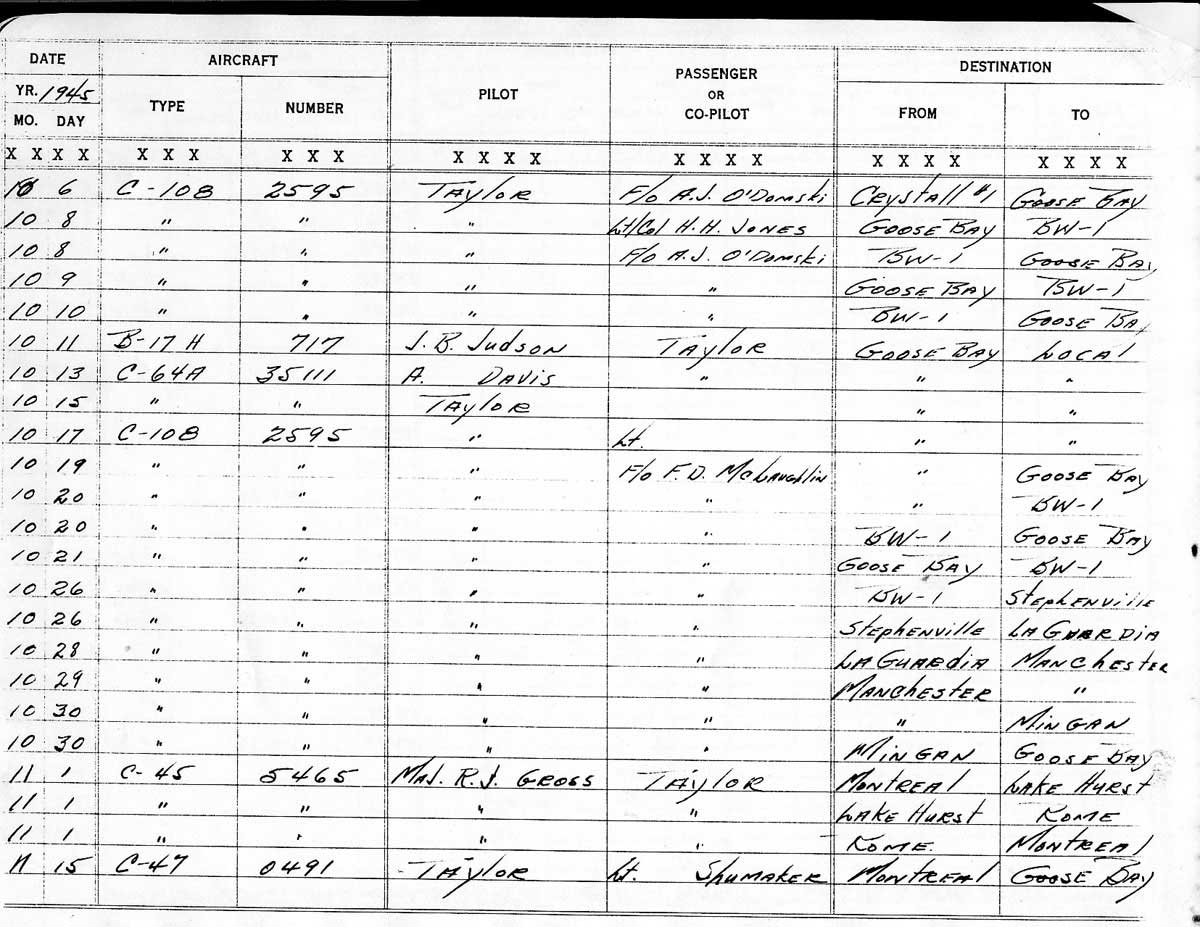 DATE AIRCRAFT PILOT PASSENGER OR CO-PILOT DESTINATION
YR. 1945 TYPE NUMBER FROM TO
MO. DAY
X X X X X X X X X X X X X X X X X X X X X X X X X X
10 6 C-108 2595 Taylor F/o A.J. O'Domski Crystall #1 Goose Bay
10 8 " " " Lt/Col H.H. Jones Goose Bay BW-1
10 8 " " " F/o A.J. O'Domski BW-1 Goose Bay
10 9 " " " " Goose Bay BW-1
10 10 " " " " BW-1 Goose Bay
10 11 B-17H 717 J.B. Judson Taylor Goose Bay Local
10 13 C-64A 35111 A. Davis " " "
10 15 " " Taylor " "
10 17 C-108 2595 " Lt. " "
10 19 " " " F/o F.D. McLaughlin " Goose Bay
10 20 " " " " " BW-1
10 20 " " " " BW-1 Goose Bay
10 21 " " " " Goose Bay BW-1
10 26 " " " " BW-1 Stephenville
10 26 " " " " Stephenville LaGuardia
10 28 " " " " LaGuardia Manchester
10 29 " " " " Manchester "
10 30 " " " " " Mingan
10 30 " " " " Mingan Goose Bay
11 1 C-45 5465 Maj. R.J. Gross Taylor Montreal Lake Hurst
11 1 " " " " Lake Hurst Rome
11 1 " " " " Rome Montreal
11 15 C-47 0491 Taylor Lt. Shumaker Montreal Goose Bay